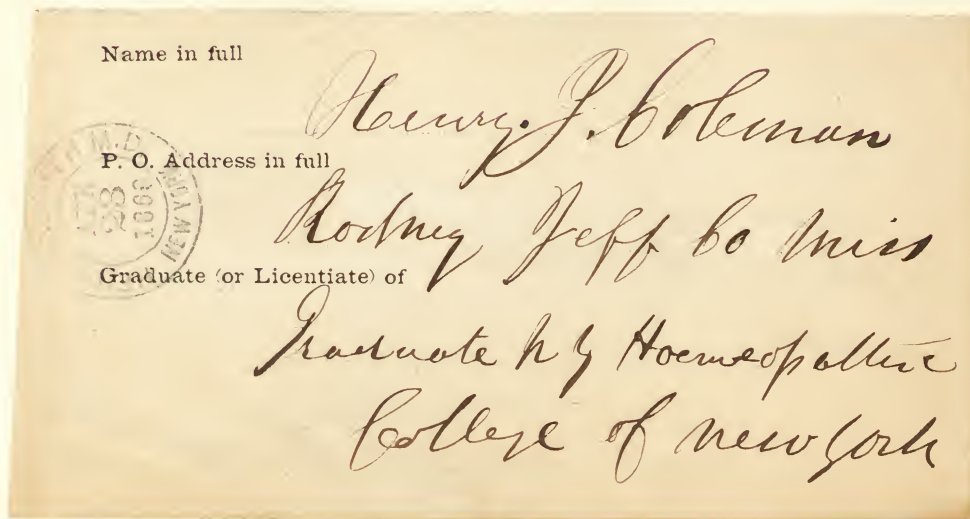 Name in full
Henry. J. Coleman
P. O. Address in full
Rodney Jeff Co Miss
Graduate (or Licentiate) of
Graduate N Y Homeopathic
College of New York
M.D.
28
NEW YORK